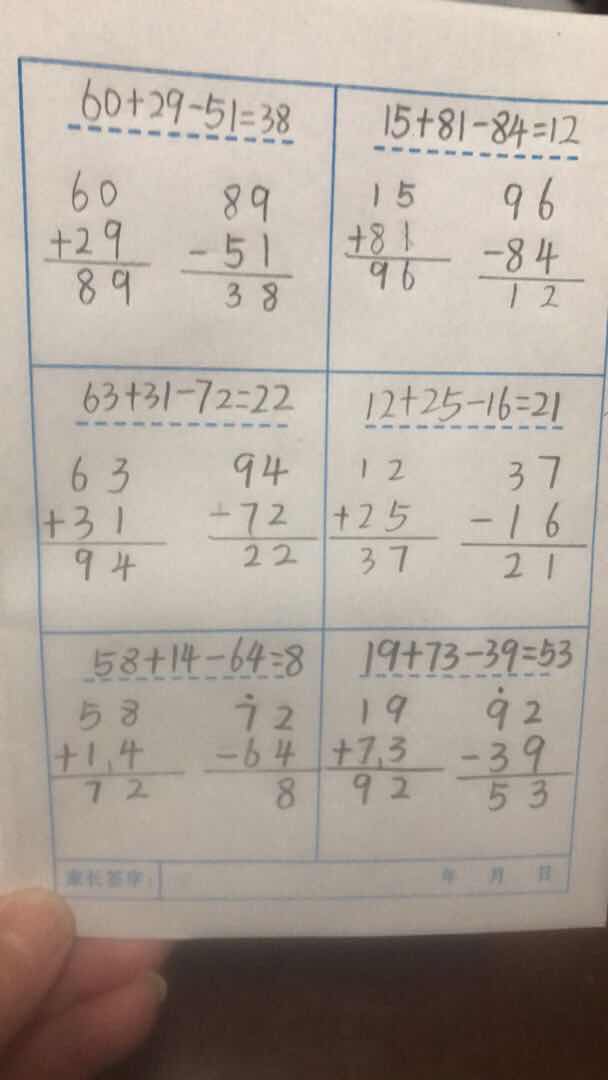 60+29-51=38
60
+29
89
89
-51
38
15+81-84=12
15
+81
96
96
-84
12
63+31-72=22
63
+31
94
94
-72
22
12+25-16=21
12
+25
37
37
-16
21
58+14-64=8
58
+14
72
72
-64
8
19+73-39=53
19
+73
92
92
-39
53
家长签字: 年 月 日